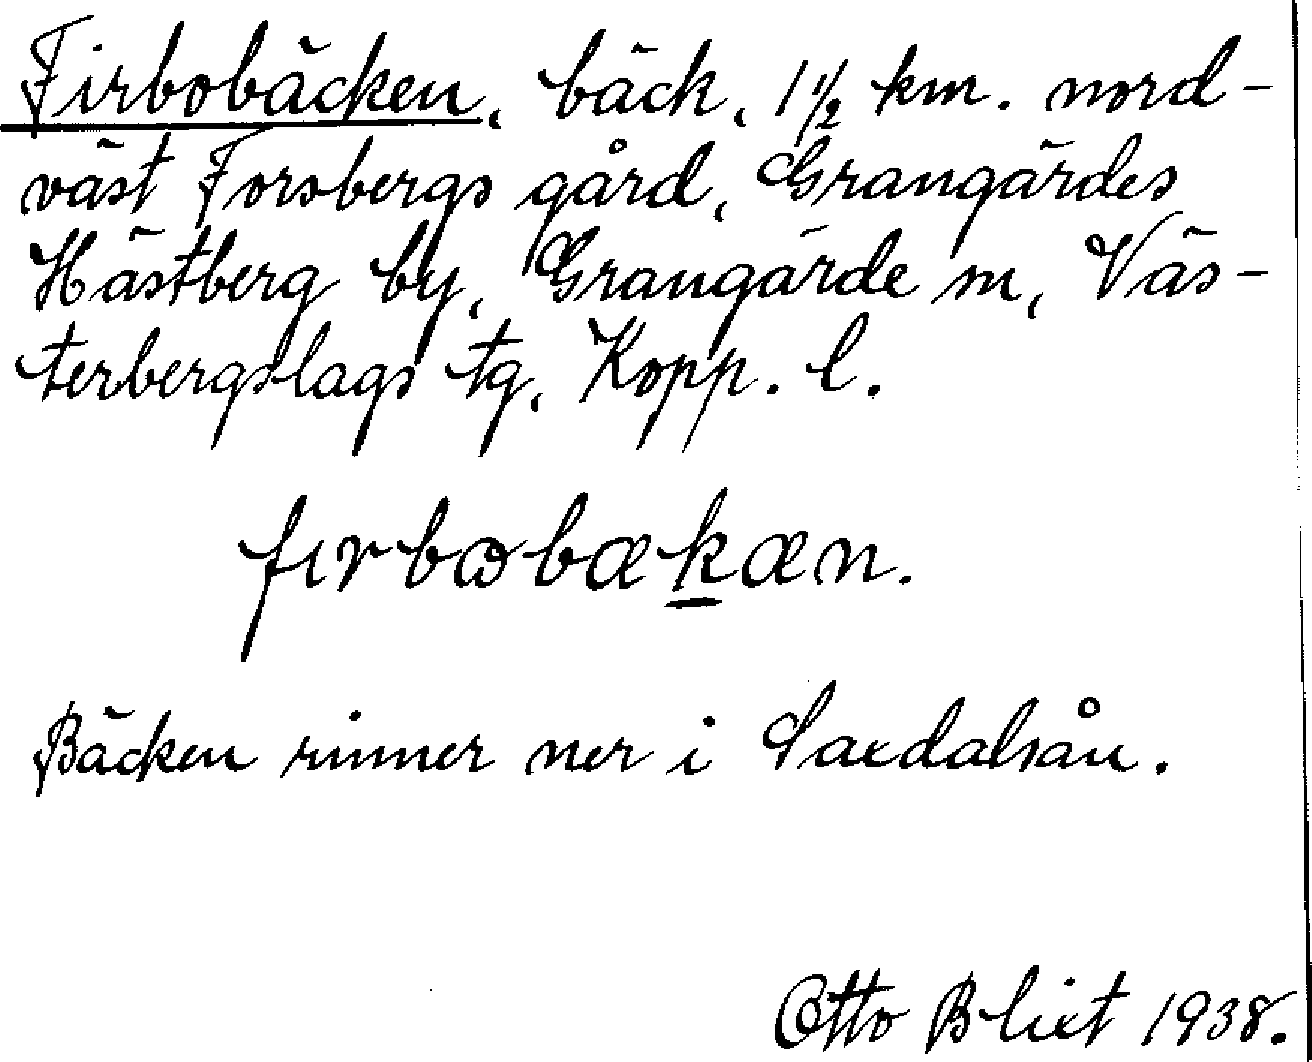 Firbobäcken, bäck, 1 1/2 km. nord-
väst Forsbergs gård, Grangärdes
Hästberg by, Grangärde sn, Väs-
terbergslags tg, Kopp. l.
fırbɷbækæn.
Bäcken rinner ner i Saxdalsån.
Otto Blixt 1938.